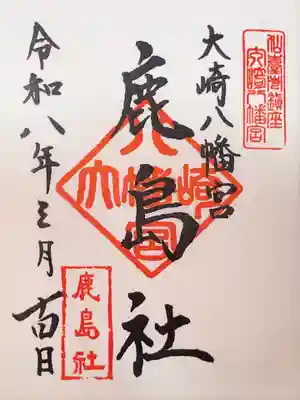 仙臺鎮座
大崎八幡宮
大崎八幡宮
鹿島社
大崎八幡宮
令和八年三月日
鹿島社